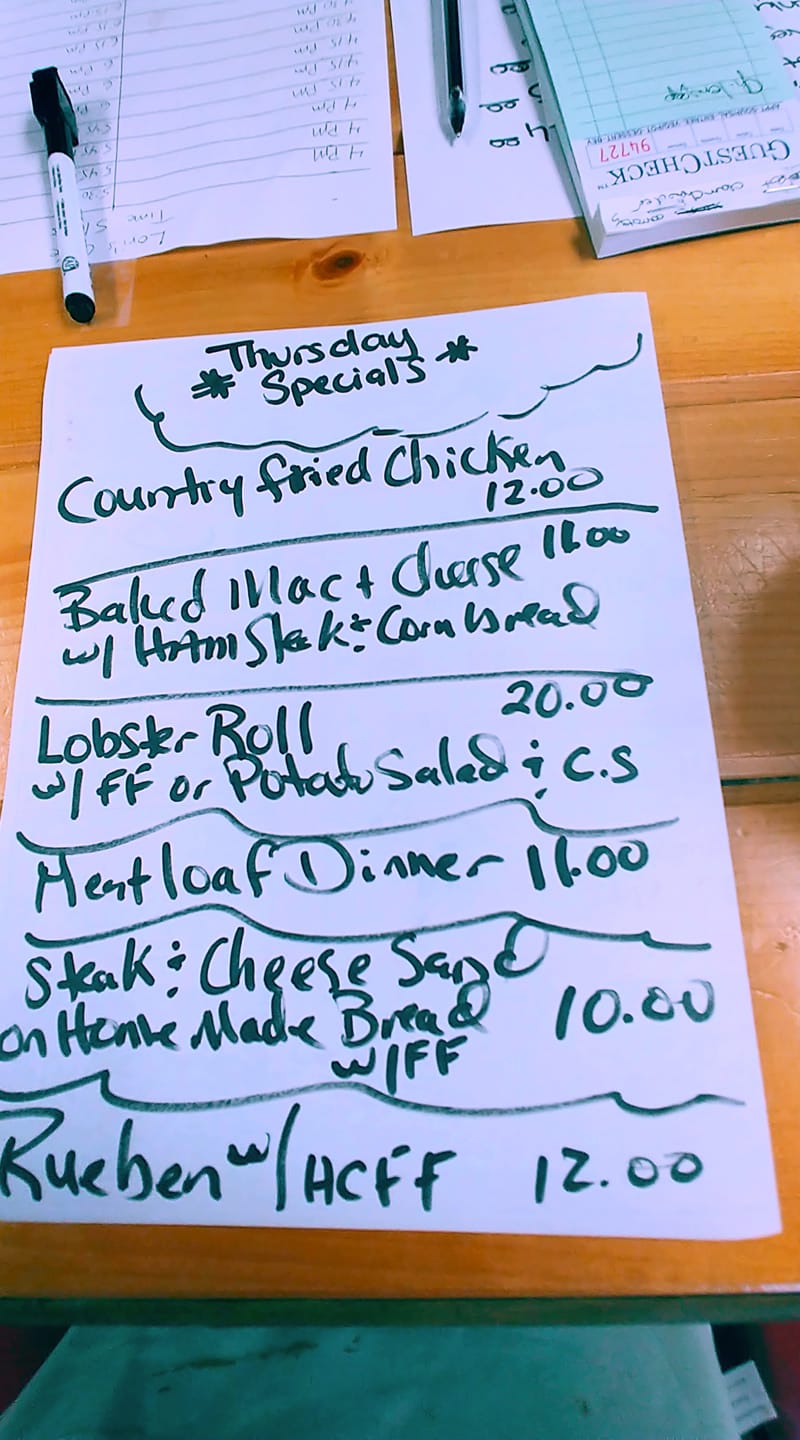 * Thursday *
Specials
Country fried Chicken
12.00
Baked Mac + Cheese 11.00
w/ HAM Steak & Cornbread
20.00
Lobster Roll
w/ FF or Potato Salad & C.S
Meatloaf Dinner 11.00
Steak & Cheese Sand
on Home Made Bread 10.00
w/FF
Rueben w/ HCFF 12.00
GUESTCHECK™
94727
Time
5:30
5:45
4 PM
4 PM
4 PM
4:15 PM
4:15 PM